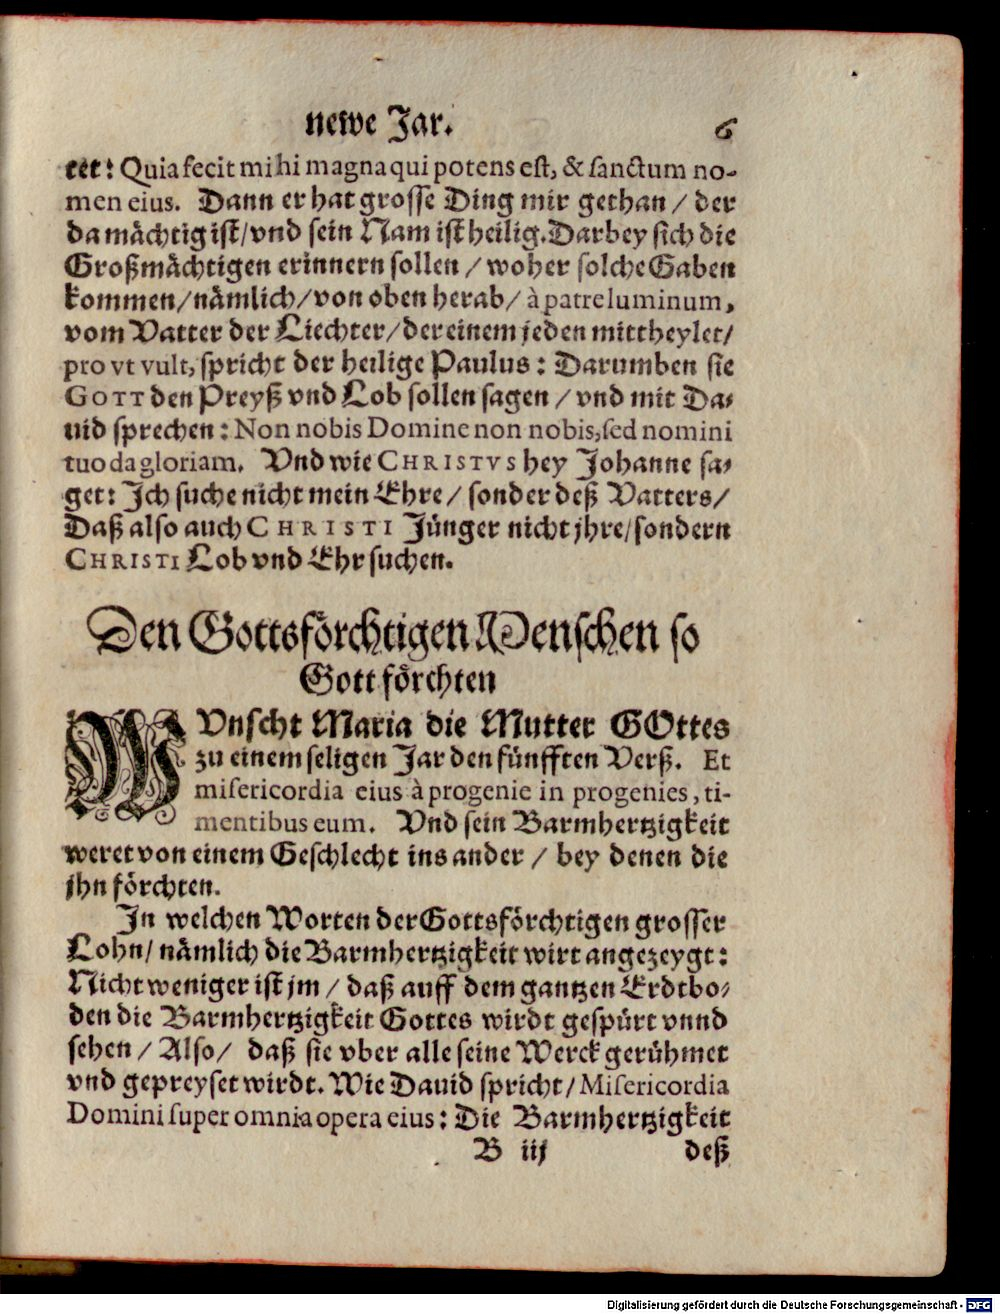 newe Jar. 6
tet: Quia fecit mihi magna qui potens est, & sanctum no-
men eius. Dann er hat grosse Ding mir gethan / der
da mächtig ist/vnd sein Nam ist heilig. Darbey sich die
Großmächtigen erinnern sollen / woher solche Gaben
kommen/nämlich/von oben herab/ à patre luminum,
vom Vatter der Liechter/der einem jeden mittheylet/
pro vt vult, spricht der heilige Paulus: Darumben sie
GOTT den Preyß vnd Lob sollen sagen / vnd mit Da-
uid sprechen: Non nobis Domine non nobis, sed nomini
tuo da gloriam. Vnd wie CHRISTVS bey Johanne sa-
get: Ich suche nicht mein Ehre / sonder deß Vatters/
Daß also auch CHRISTI Jünger nicht jhre/sondern
CHRISTI Lob vnd Ehr suchen.
Den Gottsförchtigen Menschen so
Gott förchten
WVnscht Maria die Mutter GOttes
zu einem seligen Jar den fünfften Verß. Et
misericordia eius à progenie in progenies, ti-
mentibus eum. Vnd sein Barmhertzigkeit
weret von einem Geschlecht ins ander / bey denen die
jhn förchten.
In welchen Worten der Gottsförchtigen grosser
Lohn/ nämlich die Barmhertzigkeit wirt angezeygt:
Nicht weniger ist jm / daß auff dem gantzen Erdtbo-
den die Barmhertzigkeit Gottes wirdt gespürt vnnd
sehen / Also/ daß sie vber alle seine Werck gerühmet
vnd gepreyset wirdt. Wie Dauid spricht/ Misericordia
Domini super omnia opera eius: Die Barmhertzigkeit
B iij deß
Digitalisierung gefördert durch die Deutsche Forschungsgemeinschaft - DFG